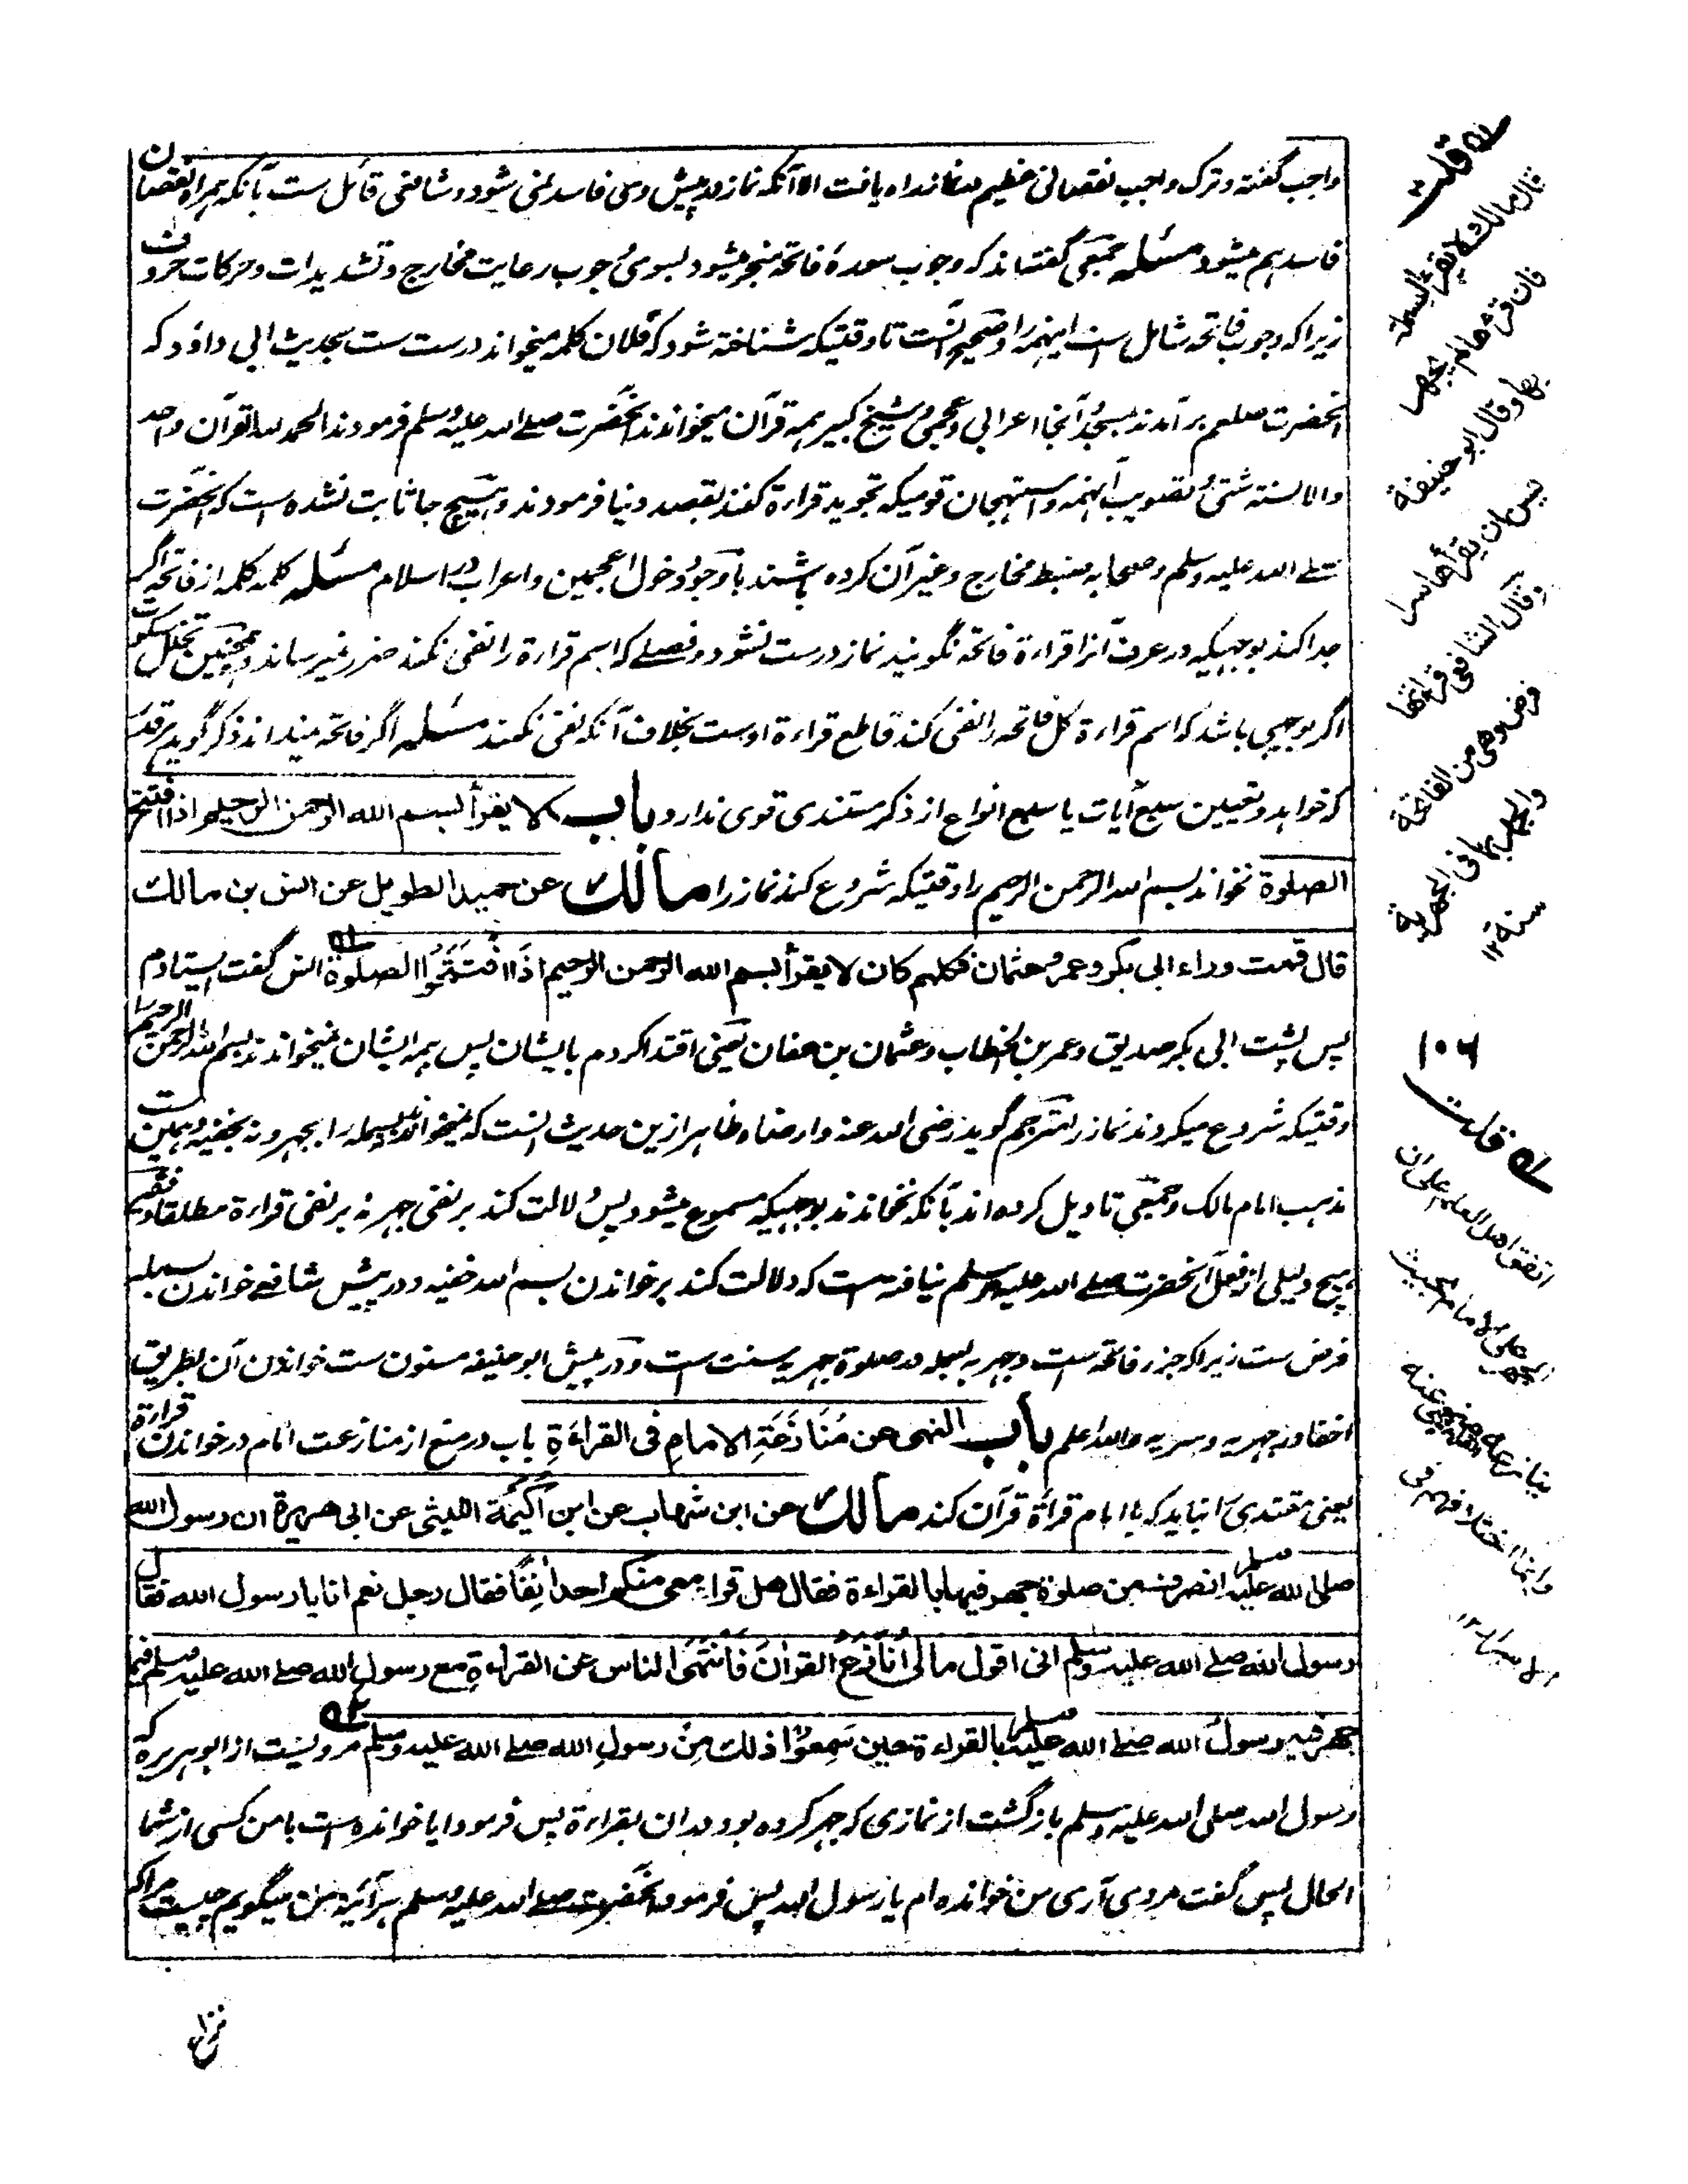 واجب گفته و ترک واجب نقصانی عظیم بنماز راه یافت الا آنکه نماز در پیش وی فاسد نمی شود و شافعی قائل ست بآنکه همراه نقصان
فاسد هم میشود مسئله جمعی گفته اند که وجوب سورهٔ فاتحه منجر میشود بسوی وجوب رعایت مخارج و تشدیدات و حرکات حروف
زیراکه وجوب فاتحه شامل ست اینهمه را و صحیح آنست تا وقتیکه شناخته شود که فلان کلمه میخواند درست ست بحدیث ابی داؤد که
آنحضرت صلعم برآمدند بمسجد و آنجا اعرابی و عجمی و شیخ کبیر همه قرآن میخواندند آنحضرت صلے الله علیه وسلم فرمودند الحمد لله القرآن واحد
والالسنة شتی و تصویب اینهمه و استهجان قومیکه تجوید قراءة کنند بقصد دنیا فرمودند و هیچ جا ثابت نشده است که آنحضرت
صلے الله علیه وسلم و صحابه ضبط مخارج و غیر آن کرده باشند با وجود دخول اعجمین و اعراب در اسلام مسئله کلمه کلمه از فاتحه اگر
جدا کند بوجهیکه در عرف آنرا قراءة فاتحه نگویند نماز درست نشود و فصلے که اسم قراءة را نفی نکند ضرر نمیرساند و همچنین تخلل سکوت
اگر بوجهی باشد که اسم قراءة کل فاتحه را نفی کند قاطع قراءة اوست بخلاف آنکه نفی نکند مسئله اگر فاتحه نمیداند ذکر گوید هر قدر
که خواهد و تعیین سبع آیات یا سبع انواع از ذکر مستندی قوی ندارد باب لا یقرأ بسم الله الرحمن الرحیم اذا افتتح
الصلوة نخواند بسم الله الرحمن الرحیم را وقتیکه شروع کند نماز را مالك عن حمید الطویل عن انس بن مالك
قال قمت وراء ابی بکر و عمر و عثمان فکلهم کان لا یقرأ بسم الله الرحمن الرحیم اذا افتتحوا الصلوة انس گفت ایستادم
پس پشت ابی بکر صدیق و عمر بن الخطاب و عثمان بن عفان یعنی اقتدا کردم بایشان پس همه ایشان نمیخواندند بسم الله الرحمن الرحیم
وقتیکه شروع میکردند نماز را مترجم گوید رضی الله عنه و ارضاه ظاهر ازین حدیث آنست که نمیخواندند بسمله را بجهر و نه بخفیه و همین ست
مذهب امام مالک و جمعی تاویل کرده اند بآنکه نخواندند بوجهیکه مسموع میشود پس دلالت کند بر نفی جهر نه بر نفی قراءة مطلقا و فقیر
هیچ دلیلی از فعل آنحضرت صلے الله علیه وسلم نیافته است که دلالت کند بر خواندن بسم الله خفیه و در پیش شافعے خواندن بسمله
فرض ست زیراکه جزر فاتحه است و جهر به بسمله در صلوة جهریه سنت ست و در پیش ابو حنیفه مسنون ست خواندن آن بطریق
اخفا در جهریه و سریه والله اعلم باب النهی عن مُنَازَعَةِ الامامِ فی القراءَةِ باب در منع از منازعت امام در خواندن قراءة
یعنی مقتدی را نباید که با امام قراءة قرآن کند مالك عن ابن شهاب عن ابن اُکَیمَة اللیثی عن ابی هریرة ان رسول الله
صلی الله علیه وسلم انصرف من صلوة جهر فیها بالقراءة فقال هل قرأ معی منکم احد اٰنِفًا فقال رجل نعم انا یا رسول الله فقال
رسول الله صلے الله علیه وسلم انی اقول ما لی اُنَازَعُ القراٰنَ فَانتَهَی الناس عن القراءةِ مع رسول الله صلے الله علیه وسلم فیما
جهر فیه رسول الله صلے الله علیه وسلم بالقراءة حین سَمِعُوا ذلك مِن رسول الله صلے الله علیه وسلم مرویست از ابو هریرة که
رسول الله صلی الله علیه وسلم بازگشت از نمازی که جهر کرده بود دران بقراءة پس فرمود ایا خوانده است با من کسی از شما
الحال پس گفت مردی آری من خوانده ام یا رسول الله پس فرمود آنحضرت صلے الله علیه وسلم هر آئینه من میگویم چیست مرا که
له قلت
قال مالك لا یقرأ البسملة
فان قرأها لم یجهر
بها وقال ابو حنیفة
یسن ان یقرأها سرا
وقال الشافعی قرأتها
فرض وهی من الفاتحة
والجهر بها فی الجهریة
سنة ۱۲
۱۰۶
له قلت
اتفق اهل العلم علی ان
الجهر علی الامام بحیث
ینازعه منهی عنه
وانما اختلافهم فی